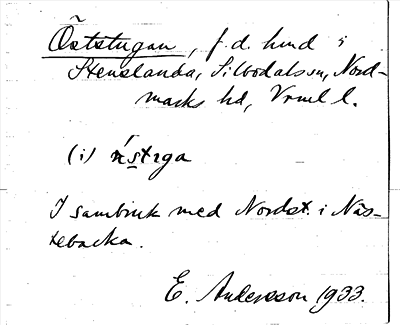 Öststugan, f.d. hmd i
Stenslanda, Silbodals sn, Nord-
marks hd, Vrml l.
(i)
I sambruk med Nordst. i Näs-
tebacka.
E. Andersson 1933.